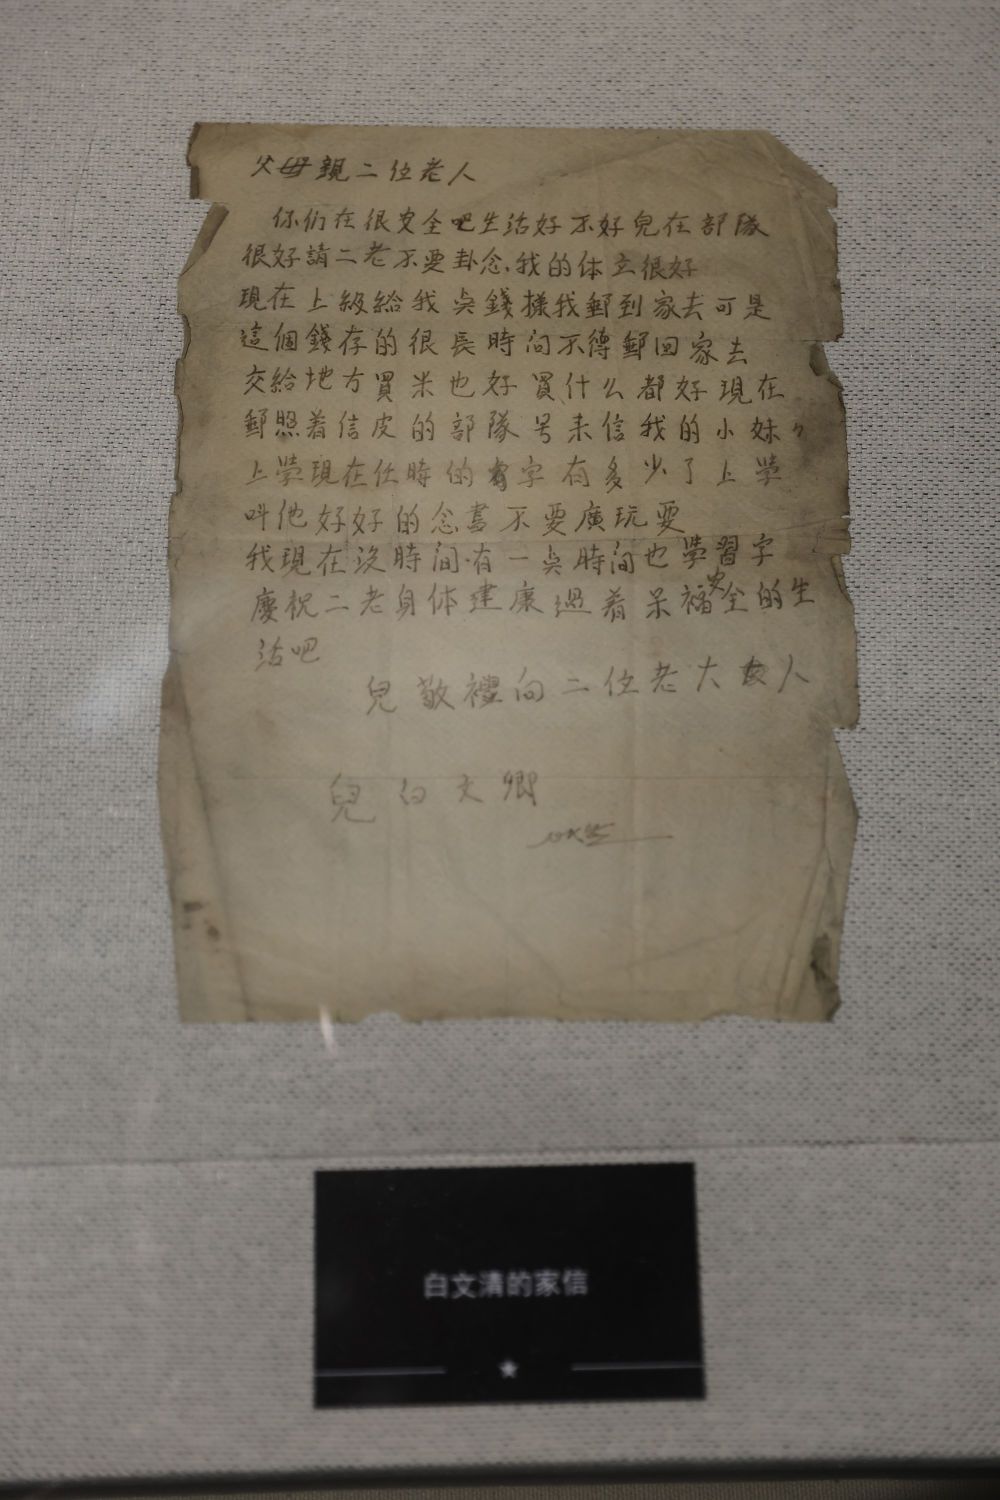 父母親二位老人
你们在很安全吧生活好不好兒在部隊
很好請二老不要卦念.我的体立很好
現在上級給我点錢樣我郵到家去可是
這個錢存的很長時间不得郵回家去
交給地方買米也好買什么都好現在
郵照着信皮的部隊号来信我的小妹々
上學現在任時的字有多少了上學
叫他好好的念書不要廣玩耍
我現在没時间.有一点時间也學習字
慶祝二老身体建康過着呆福安全的生
活吧
兒敬禮向二位老大人
兒白文卿
白文清的家信